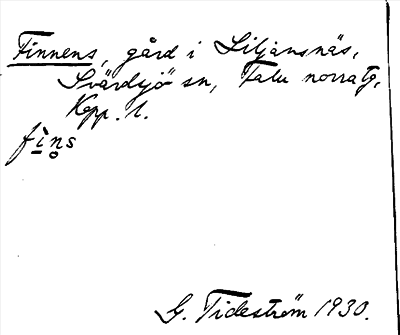 Finnens, gård i Liljansnäs,
Svärdsjö sn, Falu norra tg,
Kopp. l.
fìn̥s
G. Tideström 1930.